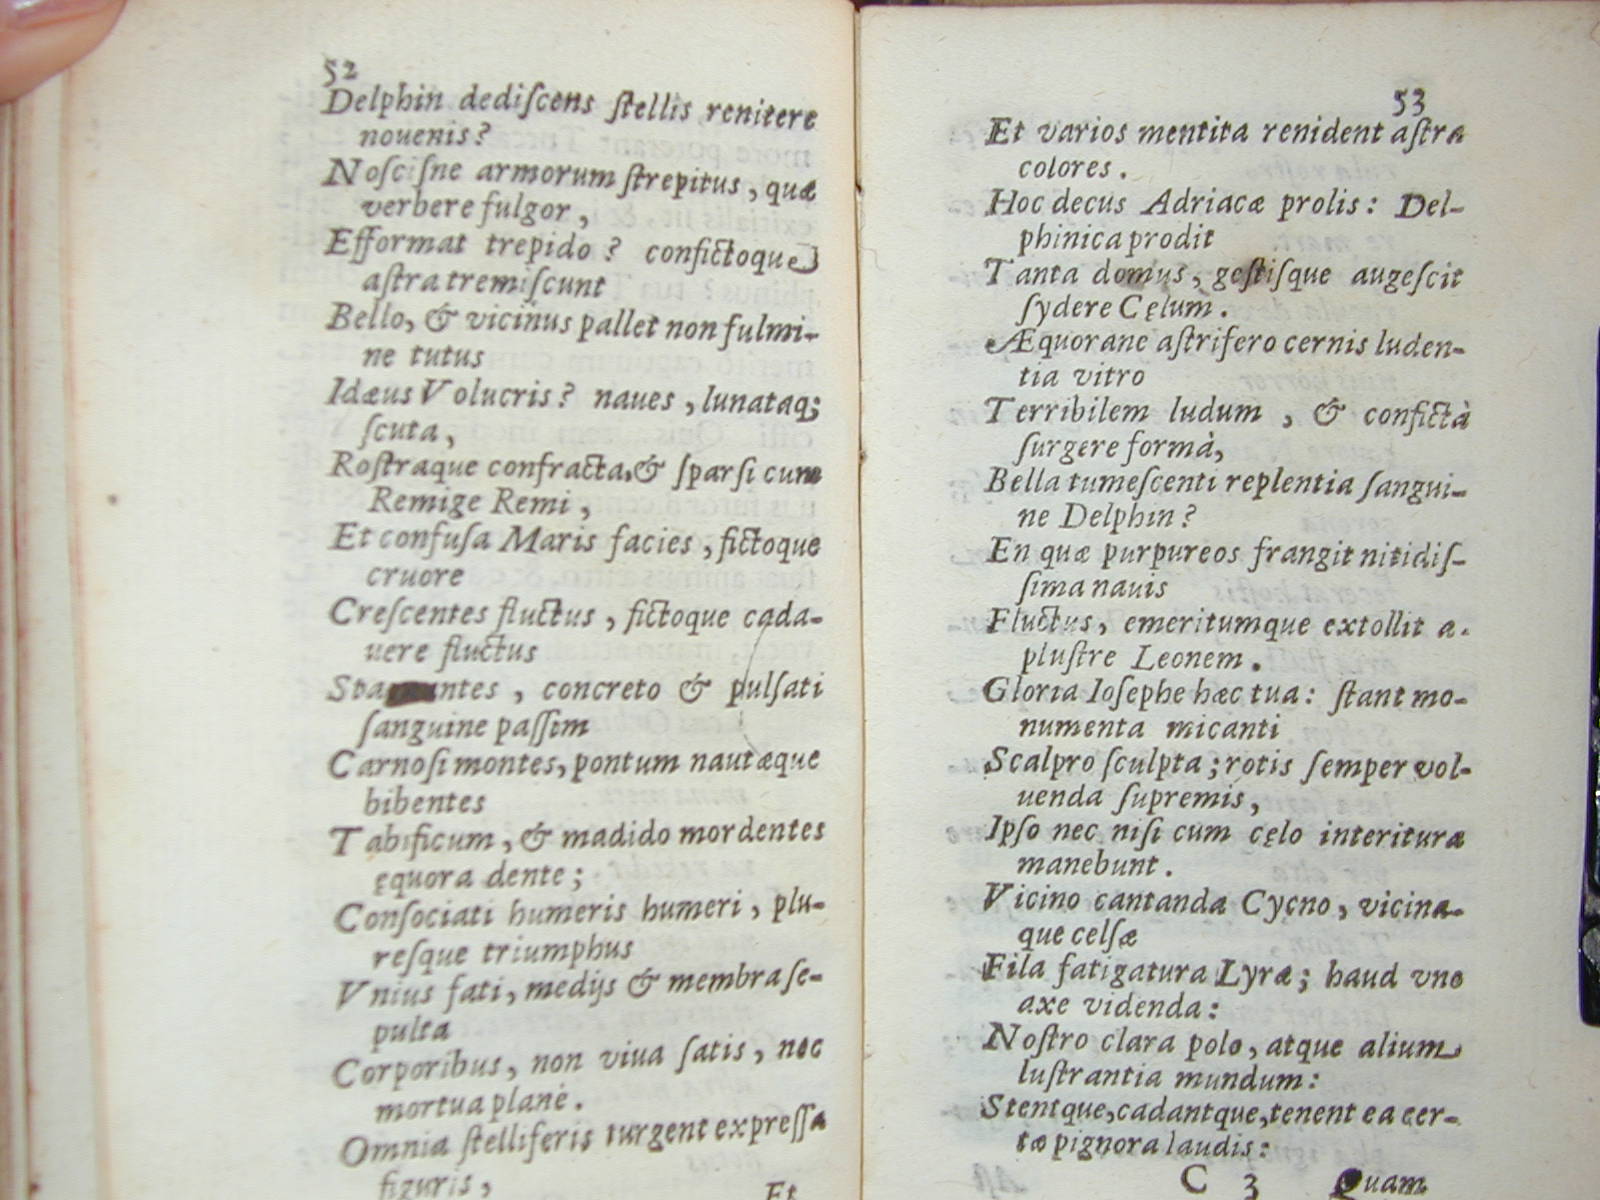 52
Delphin dediſcens ſtellis renitere
nouenis?
Noſciſne armorum ſtrepitus, quæ
verbere fulgor,
Efformat trepido? confictoque
aſtra tremiſcunt
Bello, & viciñus pallet non fulmi-
ne tutus
Idæus Volucris? naues, lunataq;
ſcuta,
Roſtraque confracta, & ſparſi cum
Remige Remi,
Et confuſa Maris facies, fictoque
cruore
Creſcentes fluctus, fictoque cada-
uere fluctus
concreto & pulſati
ſanguine paſſim
Carnoſi montes, pontum nautæque
bibentes
Tabificum, & madido mordentes
ęquora dente;
Conſociati humeris humeri, plu-
reſque triumphus
Vnius fati, medijs & membra ſe-
pulta
Corporibus, non viua ſatis, nec
mortua planè.
Omnia ſtelliferis turgent expreſſa
figuris,
Et
53
Et varios mentita renident aſtra
colores.
Hoc decus Adriacæ prolis: Del-
phinica prodit
Tanta domus, geſtiſque augeſcit
ſydere Cęlum.
Æquorane aſtrifero cernis luden-
tia vitro
Terribilem ludum, & confictà
ſurgere formà,
Bella tumeſcenti replentia ſangui-
ne Delphin?
En quæ purpureos frangit nitidiſ-
ſima nauis
Fluctus, emeritumque extollit a-
pluſtre Leonem.
Gloria Ioſephe hæc tua: ſtant mo-
numenta micanti
Scalpro ſculpta; rotis ſemper vol-
uenda ſupremis,
Ipſo nec niſi cum cęlo interituræ
manebunt.
Vicino cantanda Cycno, vicina-
que celſæ
Fila fatigatura Lyræ; haud vno
axe videnda:
Noſtro clara polo, atque alium
luſtrantia mundum:
Stentque, cadantque, tenent ea cer-
tæ pignora laudis:
C 3 Quam